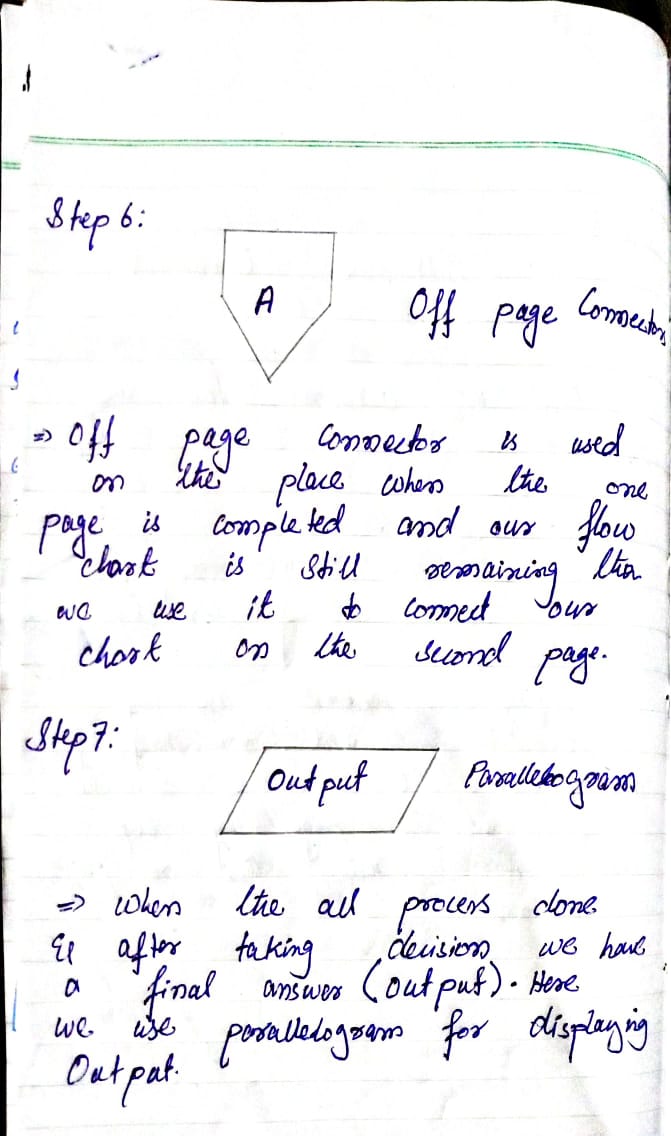 Step 6:
A
Off page Connector
⇒ Off page Connector is used
on the place when the one
page is completed and our flow
chart is still remaining then
we use it to connect our
chart on the second page.
Step 7:
Output
Parallelogram
⇒ when the all process done
& after taking decision we have
a final answer (output). Here
we use parallelogram for displaying
Output.